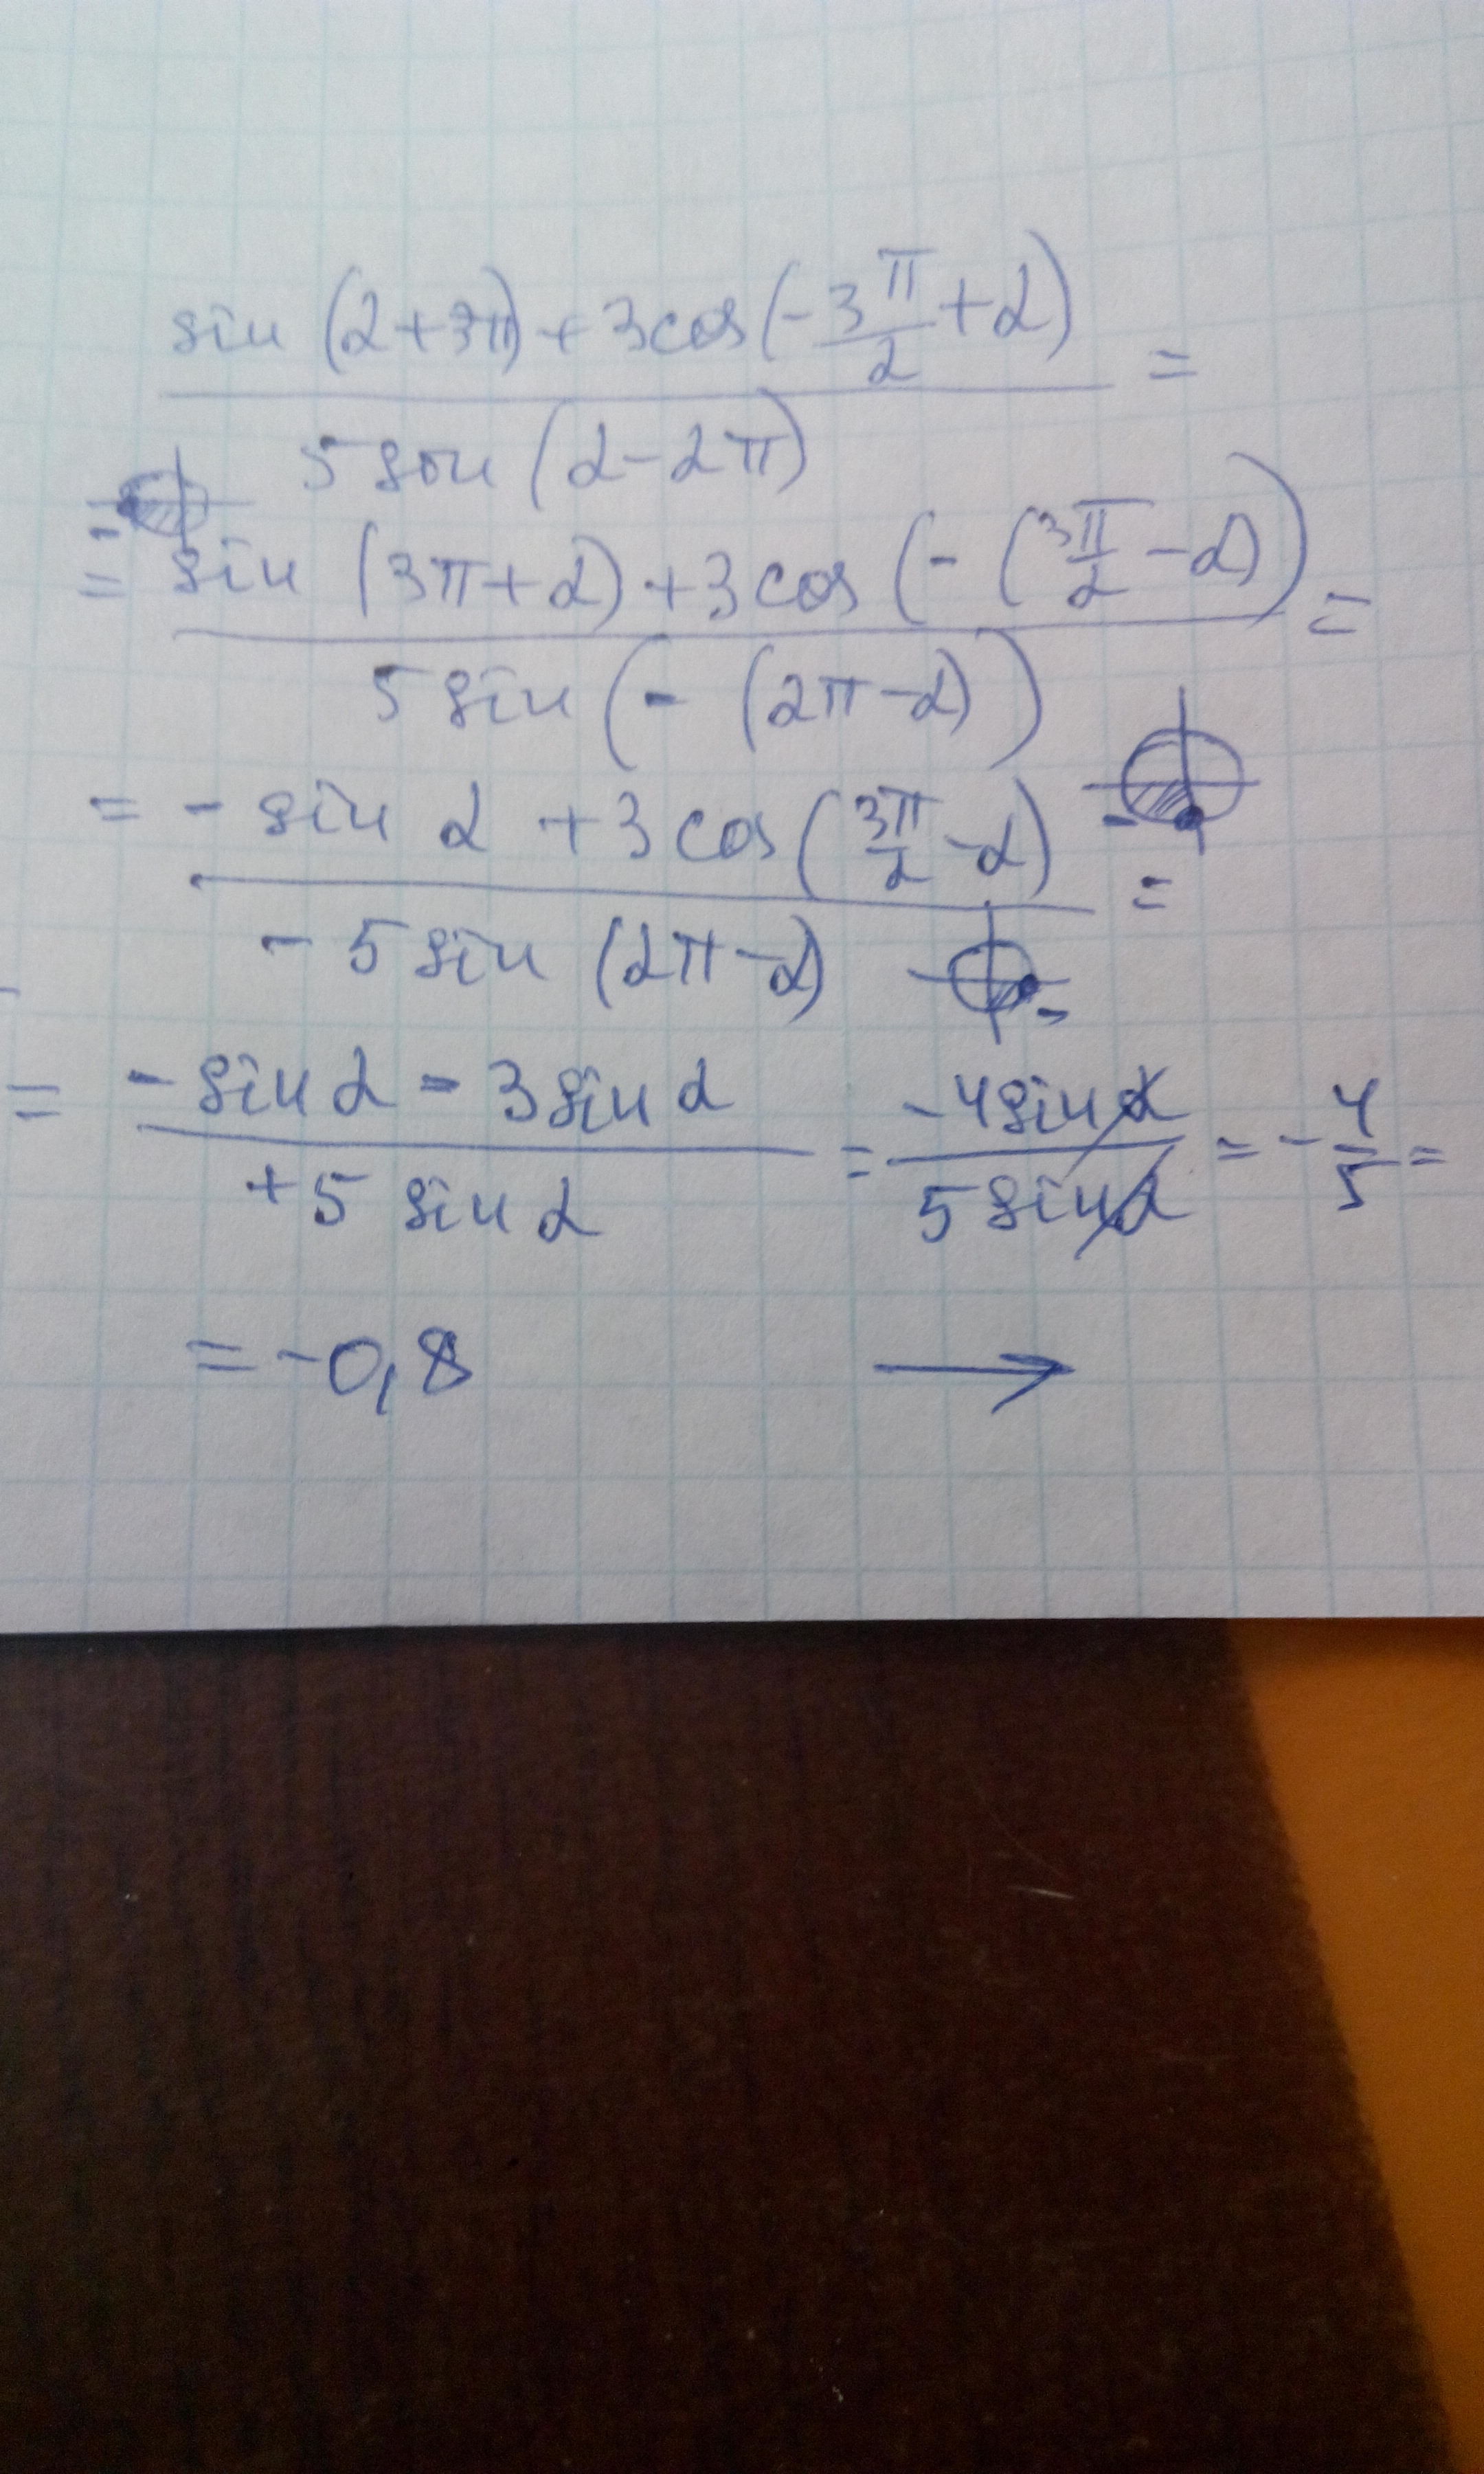 sin (α+3π) + 3cos(-3π/2 + α) / 5 sin (α-2π) =
= sin (3π+α) + 3cos (-(3π/2 - α)) / 5 sin (-(2π-α)) =
= - sin α + 3cos (3π/2 - α) / - 5 sin (2π-α) =
= - sin α - 3 sin α / + 5 sin α = -4 sin α / 5 sin α = - 4/5 =
= -0,8 →